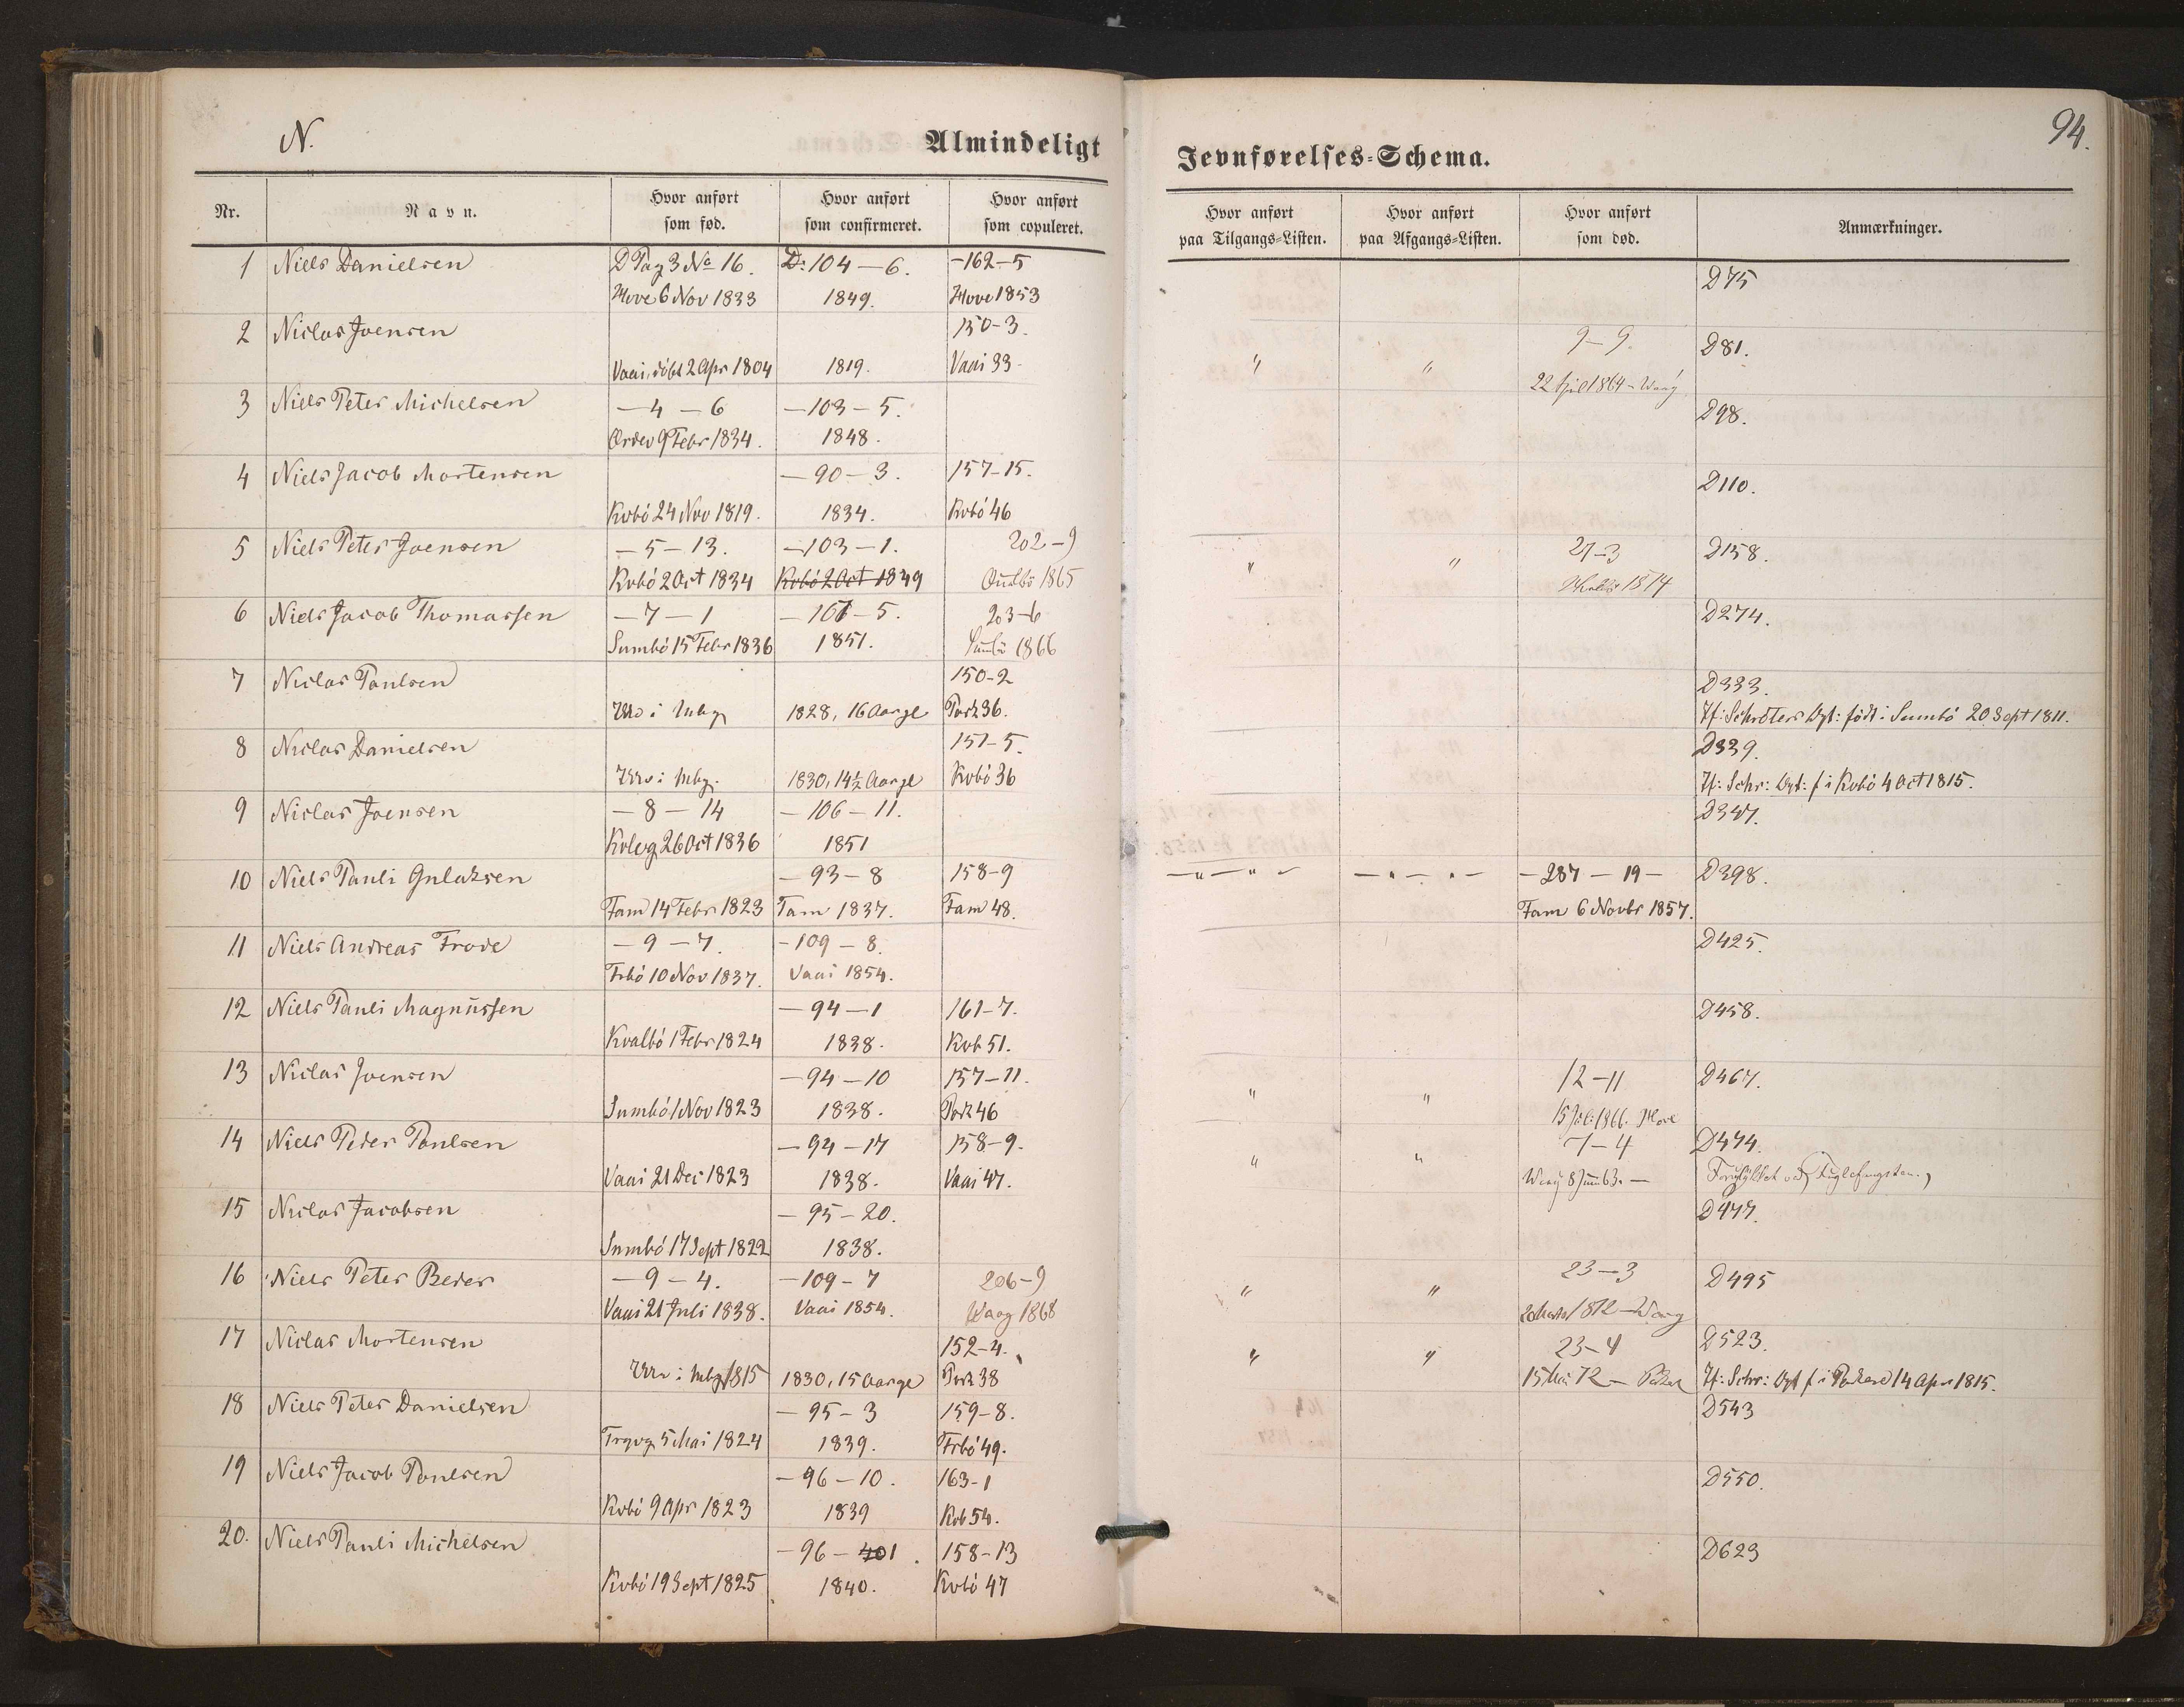 N.
Almindeligt
Jevnførelses-Schema.
94.
Nr.
Navn.
Hvor anført som fød.
Hvor anført som confirmeret.
Hvor anført som copuleret.
Hvor anført paa Tilgangs-Listen.
Hvor anført paa Afgangs-Listen.
Hvor anført som død.
Anmærkninger.
1 Niels Danielsen D Pag 3 No 16. D: 104 — 6. -162-5 D75
Hove 6 Nov 1833 1849. Hove 1853
2 Niclas Joensen 150-3. 9-9. D81.
Vaai, döbt 2 Apr 1804 1819. Vaai 33 " " 22 April 1864 - Waag
3 Niels Peter Michelsen —4—6 —103—5. D98.
Ordev 9 Febr 1834. 1848.
4 Niels Jacob Mortensen —90—3. 157-15. D110.
Kvbó 24 Nov 1819. 1834. Kvbó 46
5 Niels Peter Joensen —5—13. —103—1. 202-9 " " 27-3 D158.
Kvbó 2 Oct 1834 Kvbó 2 Oct 1849 Qualbö 1865 1874
6 Niels Jacob Thomassen —7—1 —107—5. 203-6 D274.
Sumbó 15 Febr 1836 1851. Sumbö 1866
7 Niclas Poulsen 150-2 D333.
1828, 16 Aar gl Pork 36. Jf: Schröters Opt: födt i Sumbó 20 Sept 1811.
8 Niclas Danielsen 151-5. D339.
1830, 14½ Aar gl Kvbó 36 Jf: Schr: Opt: f i Kvbó 4 Oct 1815.
9 Niclas Joensen —8—14 —106—11. D347.
Kvlvg 26 Oct 1836 1851
10 Niels Pauli Gulaksen —93—8 158-9 —"—"— —"—"— —287—19— D398.
Fam 14 Febr 1823 Fam 1837. Fam 48. Fam 6 Novbr 1857.
11 Niels Andreas Frode —9—7. —109—8. D425.
Frbó 10 Nov 1837. Vaai 1854.
12 Niels Pauli Magnussen —94—1 161-7. D458.
Kvalbó 1 Febr 1824 1838. Kvb 51.
13 Niclas Joensen —94—10 157-11. " " 12-11 D467.
Sumbó 1 Nov 1823 1838. Pork 46 15 Juli 1866. Hove
14 Niels Peder Poulsen —94—17 158-9. " " 7-4 D474.
Vaai 21 Dec 1823 1838. Vaai 47. Waag 8 Juni 63. — Forulykket ved Fuglefangsten.
15 Niclas Jacobsen —95—20. D477.
Sumbó 17 Sept 1822 1838.
16 Niels Peter Beder —9—4. —109—7 206-9 " " 23-3 D495
Vaai 21 Juli 1838. Vaai 1854. Waag 1868 1872 - Waag
17 Niclas Mortensen 152-4. " " 23-4 D523.
1815 1830, 15 Aar gl Pork 38 15 Mai 72 — Jf: Schr: Opt f i Porkere 14 Apr 1815.
18 Niels Peter Danielsen —95—3 159-8. D543
Trgvg 5 Mai 1824 1839. Frbó 49.
19 Niels Jacob Poulsen —96—10. 163-1 D550.
Kvbó 9 Apr 1823 1839 Kvb 54.
20. Niels Pauli Michelsen —96—401. 158-13 D623
Kvbó 19 Sept 1825 1840. Kvbó 47